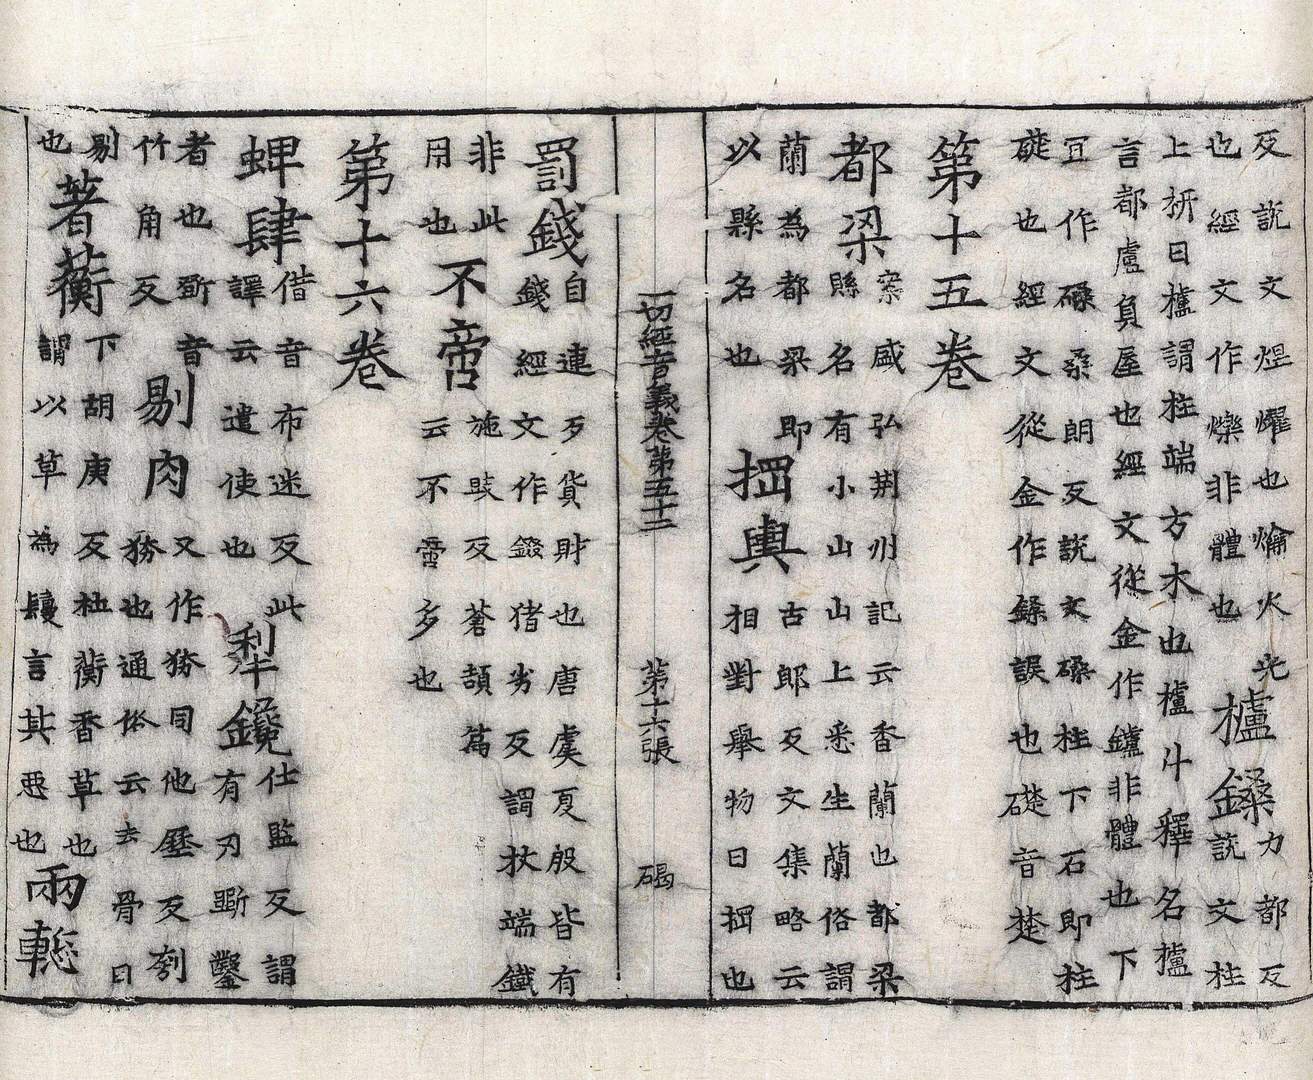 反說文煜燿也爚火光
也經文作爍非體也
櫨鎟
力都反
說文柱
上枅曰櫨謂柱端方木也櫨斗釋名櫨
言都盧負屋也經文從金作鑪非體也下
冝作磉桑朗反說文磉柱下石即柱
礎也經文從金作鎟誤也礎音楚
第十五卷
都梁
案盛弘荊州記云香蘭也都梁
縣名有小山山上悉生蘭俗謂
蘭為都梁即
以縣名也
掆輿
古郎反文集略云
相對舉物曰掆也
一切經音義卷第五十二 第十六張 碣
罰錢
自連歹貨財也唐虞夏殷皆有
錢經文作錣猪劣反謂杖端鐵
非此
用也
不啻
施豉反蒼頡篇
云不啻多也
第十六卷
蜱肆
借音布迷反此
譯云遣使也
犁鑱
仕監反謂
有刃斲鑿
者也斲音
竹角反
剔肉
又作務同他歷反刳
務也通俗云去骨曰
剔
也
著蘅
下胡庚反杜蘅香草也
謂以草為鬘言其悪也
兩